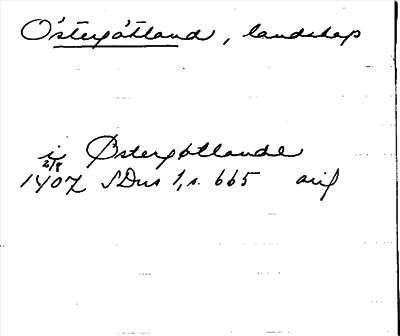 Östergötland, landskap
i Østergøtlande
2/8
1407 SDns 1, s. 665 avs